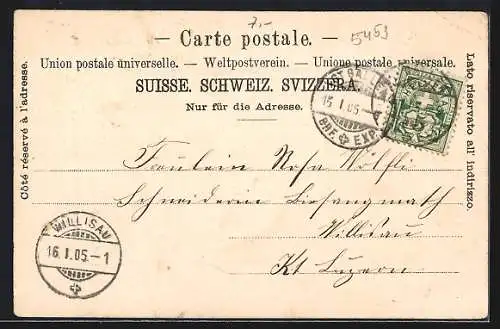 7.-
5453
— Carte postale. —
Union postale universelle. — Weltpostverein. — Unione postale universale.
SUISSE. SCHWEIZ. SVIZZERA.
Nur für die Adresse.
Côté réservé à l'adresse.
Lato riservato all' indirizzo.
ST. GALLEN
15. I. 05.
BRF. EXP.
Fräulein Rosa Wölfli
Schneiderin
Willisau
Kt Luzern
WILLISAU
16. I. 05. – 1